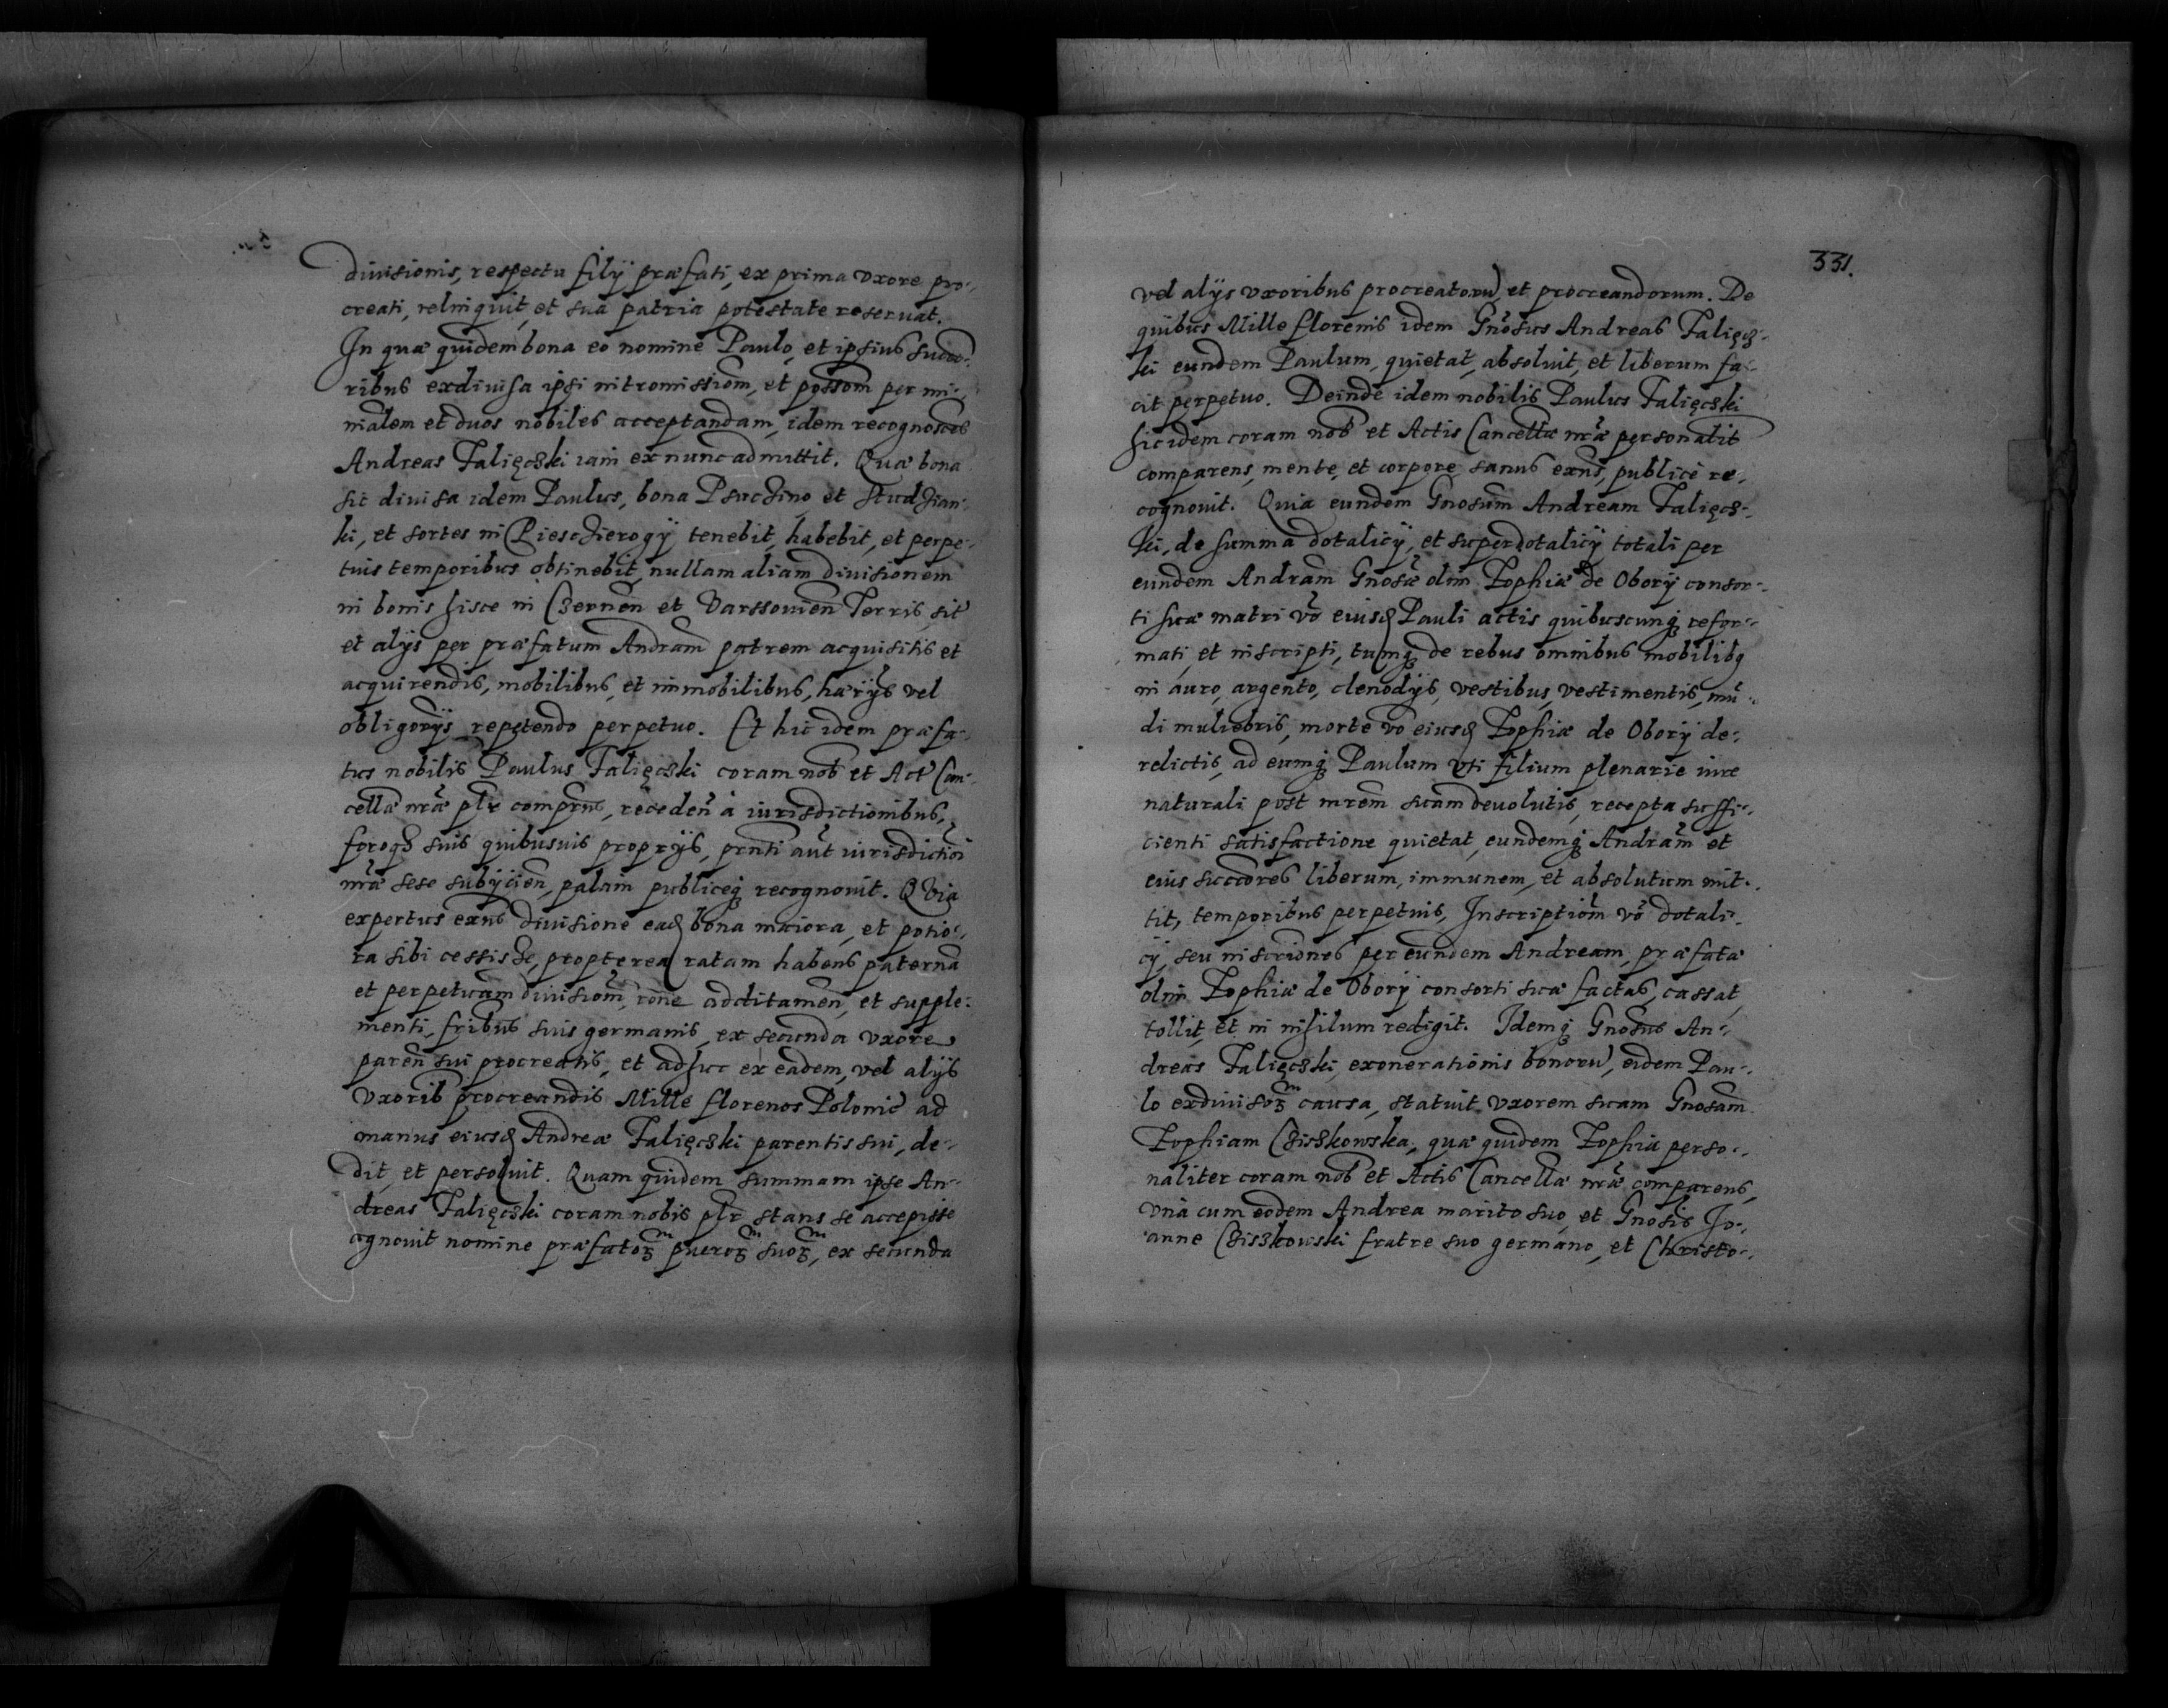 divisionis, respectu filÿ præfati, ex prima vxore pro-
creati, relinquit, et sua patria potestate reseruat.
In quæ quidem bona eo nomine Paulo, et ipsius succo-
ribus exdiuisa ipsi intromissiom, et possom per mi-
nialem et duos nobiles acceptandam, idem recognoscens
Andreas Falięcski iam ex nunc admittit. Quæ bona
sic diuisa idem Paulus, bona et
ki, et sortes in tenebit, habebit, et perpe-
tuis temporibus obtinebit, nullam aliam diuisionem
in bonis hisce in Czernen et Varssouien Terris sit
et alÿs per præfatum Andram patrem acquisitis et
acquirendis, mobilibus, et immobilibus, hærÿs vel
obligorÿs repetendo perpetuo. Et hic idem præfa-
tus nobilis Paulus Falięcski coram nob et Act Can-
cellæ nræ plr comprns, receden à iurisdictionibus,
foroq3 suis quibusuis proprÿs, prnti aut iurisdictioi
nræ sese subÿcien, palam publiceq3 recognouit. QVia
expertus exns diuisione ead bona maiora, et potio-
ra sibi cessisse, propterea ratam habens paterna
et perpetuam diuisiom, rone additamen, et supple-
menti, fribus suis germanis, ex secunda vxore
paren sui procreatis, et adhuc ex eadem, vel alÿs
vxorib procreandis Mille florenos Polonic ad
manus eiusd Andreæ Falięcski parentis sui, de-
dit, et persoluit. Quam quidem summam ipse An-
dreas Falięcski coram nobis plr stans se accepisse
agnouit nomine præfatoʒ pueroʒ suoʒ, ex secunda
331.
vel alÿs vxoribus procreatoru, et procreandorum. De
quibus Mille florenis idem Gnosus Andreas Falięcs-
ki eundem Paulum, quietat, absoluit, et liberum fa-
cit perpetuo. Deinde idem nobilis Paulus Falięcski
hic idem coram nob et Actis Cancellæ nræ personalit
comparens, mente, et corpore sanus exns, publicè re-
cognouit. Quia eundem Gnosum Andream Falięcs-
ki, de summa dotalicÿ, et superdotalicÿ totali per
eundem Andram Gnosæ olim Zophiæ de Oborÿ consor-
ti suæ matri vo eiusd Pauli actis quibuscunq3 refor-
mati, et inscripti, tumq3 de rebus omnibus mobilibq
in auro, argento, clenodÿs, vestibus, vestimentis, mu-
di muliebris, morte vo eiusd Zophiæ de Oborÿ de-
relictis, ad eumq3 Paulum vti filium plenarie iure
naturali post mrem suam deuolutis, recepta suffi-
cienti satisfactione quietat, eundemq3 Andram et
eius succores liberum, immunem, et absolutum mit-
tit, temporibus perpetuis, Inscriptiom vo dotali-
cÿ, seu inscriones per eundem Andream, præfatæ
olim Zophiæ de Oborÿ consorti suæ factas, cassat,
tollit, et in nihilum redigit. Idemq3 Gnosus An-
dreas Falięcski, exonerationis bonoru, eidem Pau-
lo exdiuisoʒ causa, statuit vxorem suam Gnosam
Zophiam Cziszkowska, quæ quidem Zophia perso-
naliter coram nob et Actis Cancellæ nræ comparens,
vnà cum eodem Andrea marito suo, et Gnosis Jo-
anne Cziszkowski fratre suo germano, et Christo-